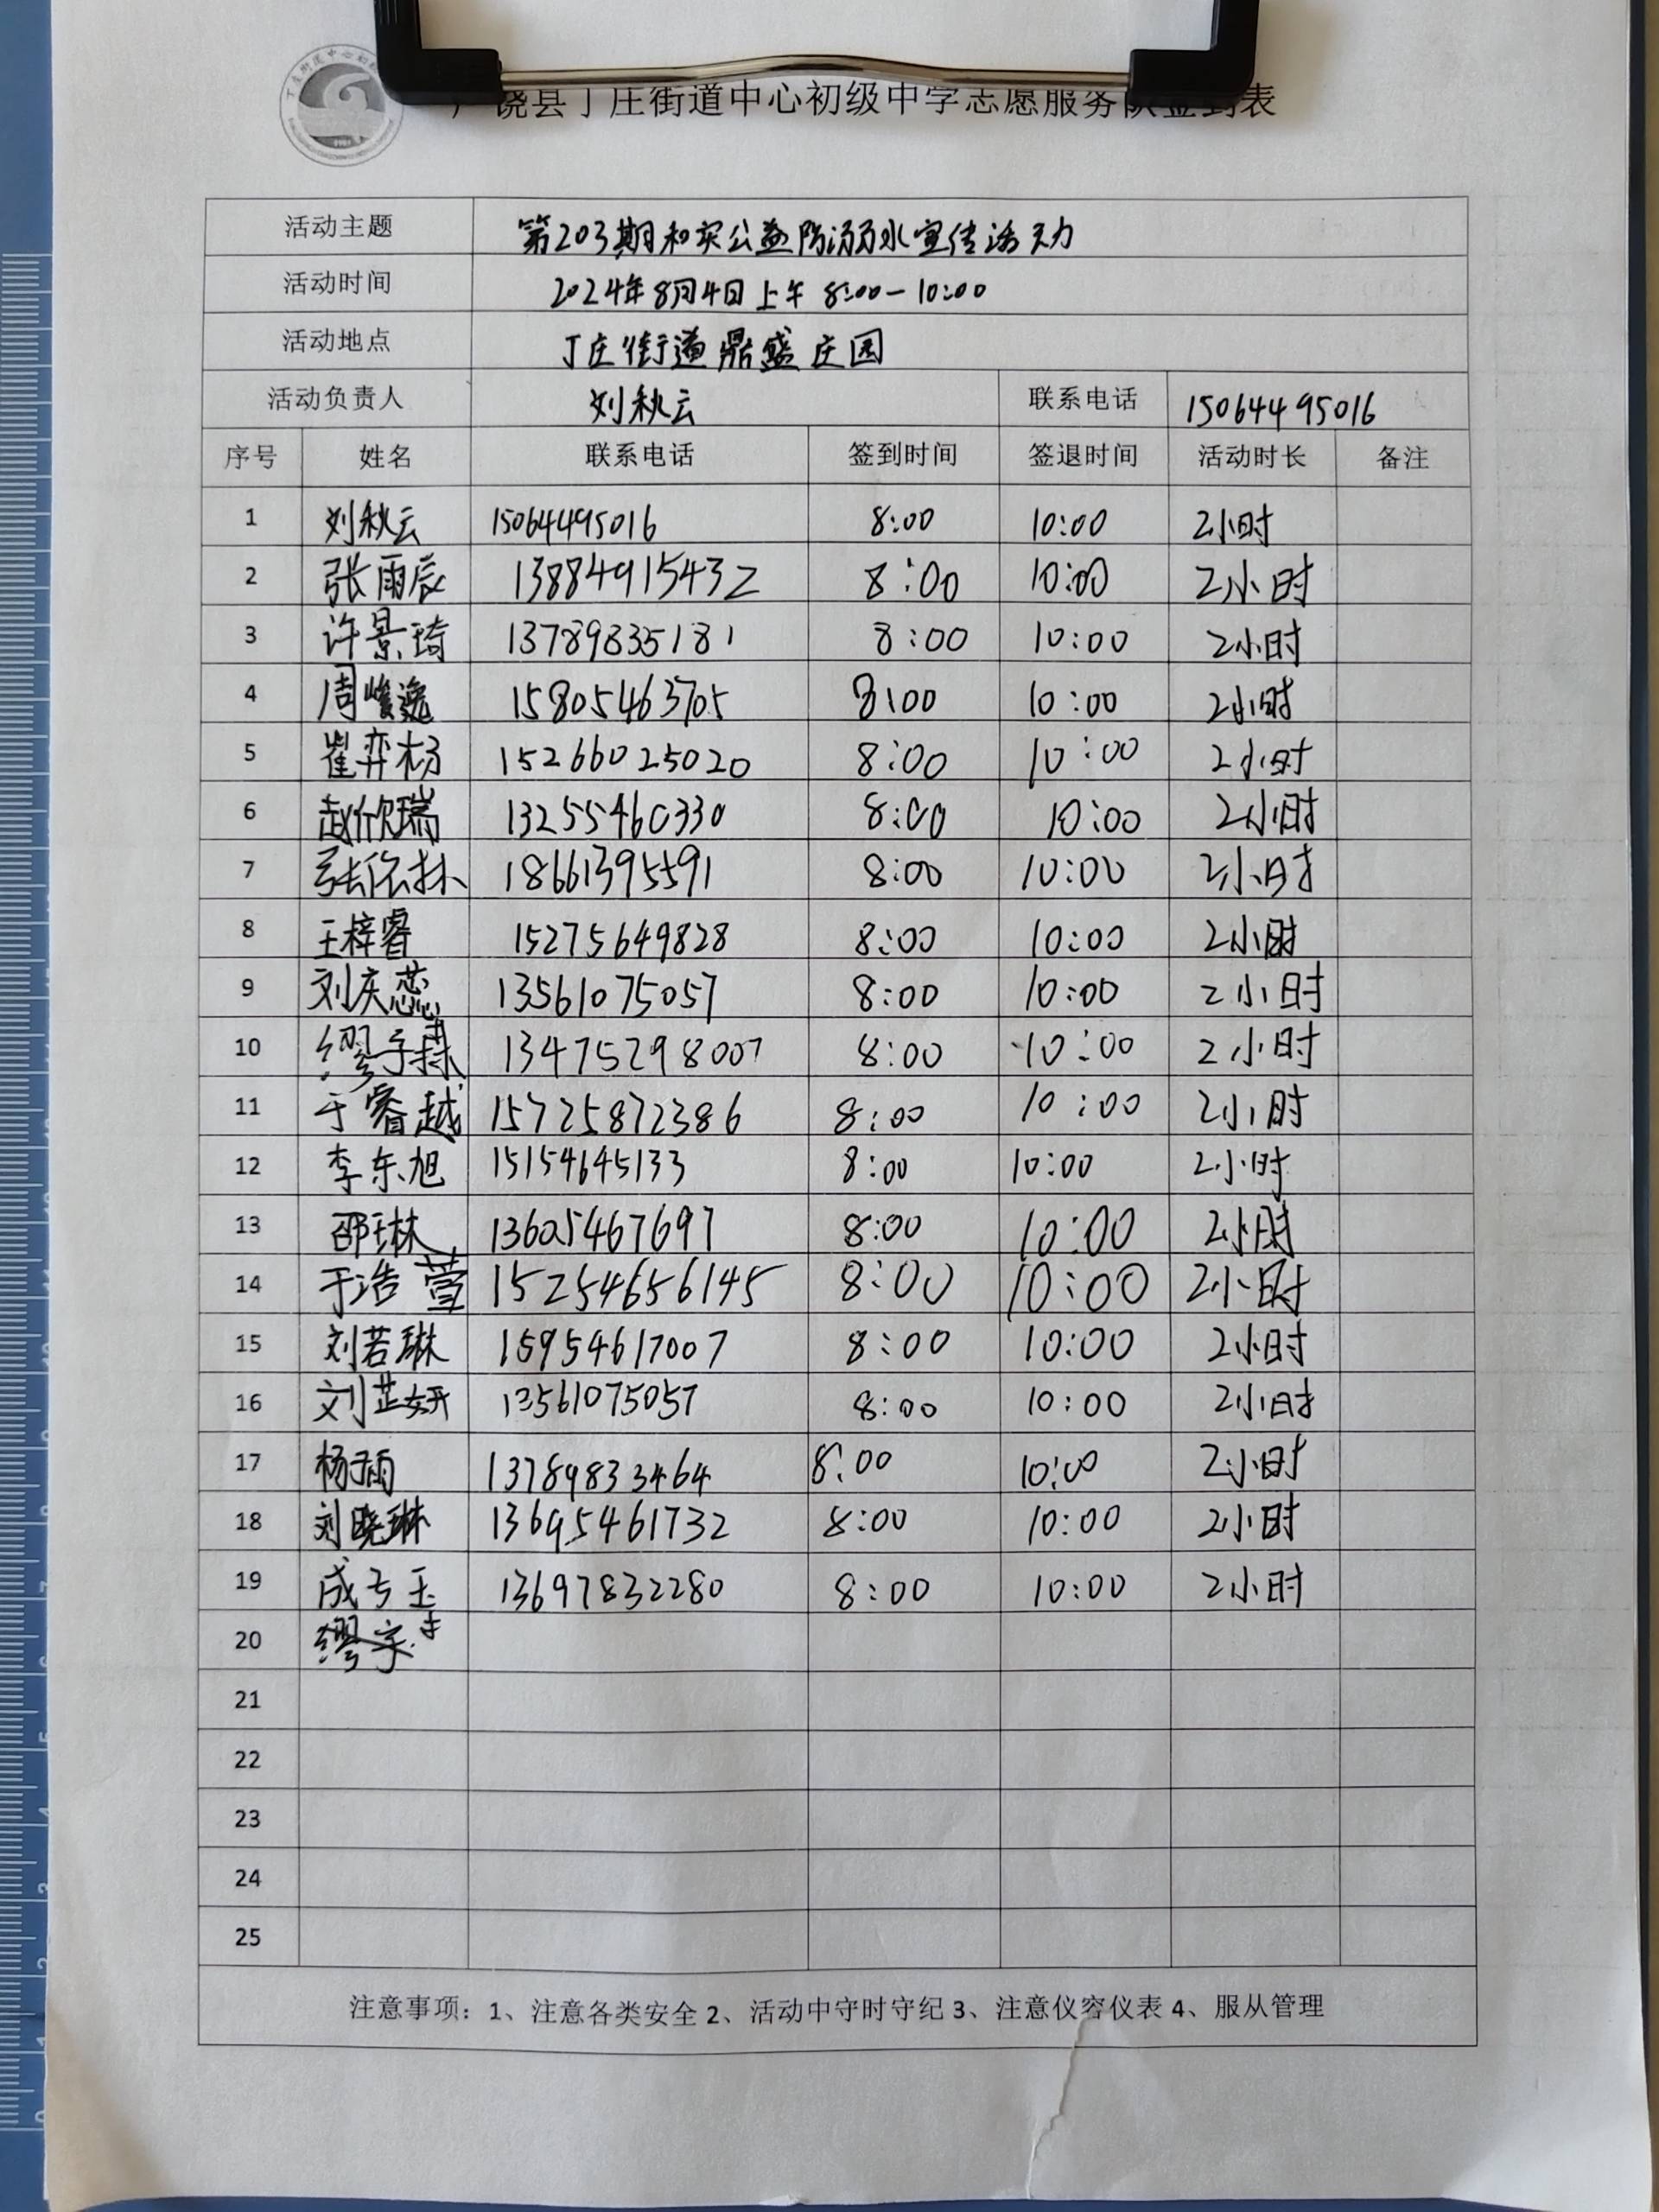 广饶县丁庄街道中心初级中学志愿服务队签到表
活动主题 第203期和实公益防溺水宣传活动
活动时间 2024年8月4日上午 8:00-10:00
活动地点 丁庄街道鼎盛庄园
活动负责人 刘秋云 联系电话 15064495016
序号 姓名 联系电话 签到时间 签退时间 活动时长 备注
1 刘秋云 15064495016 8:00 10:00 2小时
2 张雨辰 13884915432 8:00 10:00 2小时
3 许景琦 13789835181 8:00 10:00 2小时
4 周峻逸 15805463705 8:00 10:00 2小时
5 崔弈杨 15266025020 8:00 10:00 2小时
6 赵欣瑞 13255460330 8:00 10:00 2小时
7 张依林 18661395591 8:00 10:00 2小时
8 王梓睿 15275649828 8:00 10:00 2小时
9 刘庆蕊 13561075057 8:00 10:00 2小时
10 缪子 13475298007 8:00 10:00 2小时
11 于睿越 15725872386 8:00 10:00 2小时
12 李东旭 15154645133 8:00 10:00 2小时
13 邵琳 13605467697 8:00 10:00 2小时
14 于浩萱 15254656145 8:00 10:00 2小时
15 刘若琳 15954617007 8:00 10:00 2小时
16 刘芷妍 13561075057 8:00 10:00 2小时
17 杨雨 13789833464 8:00 10:00 2小时
18 刘晓琳 13695461732 8:00 10:00 2小时
19 成玉 13697832280 8:00 10:00 2小时
20 缪
21
22
23
24
25
注意事项：1、注意各类安全 2、活动中守时守纪 3、注意仪容仪表 4、服从管理